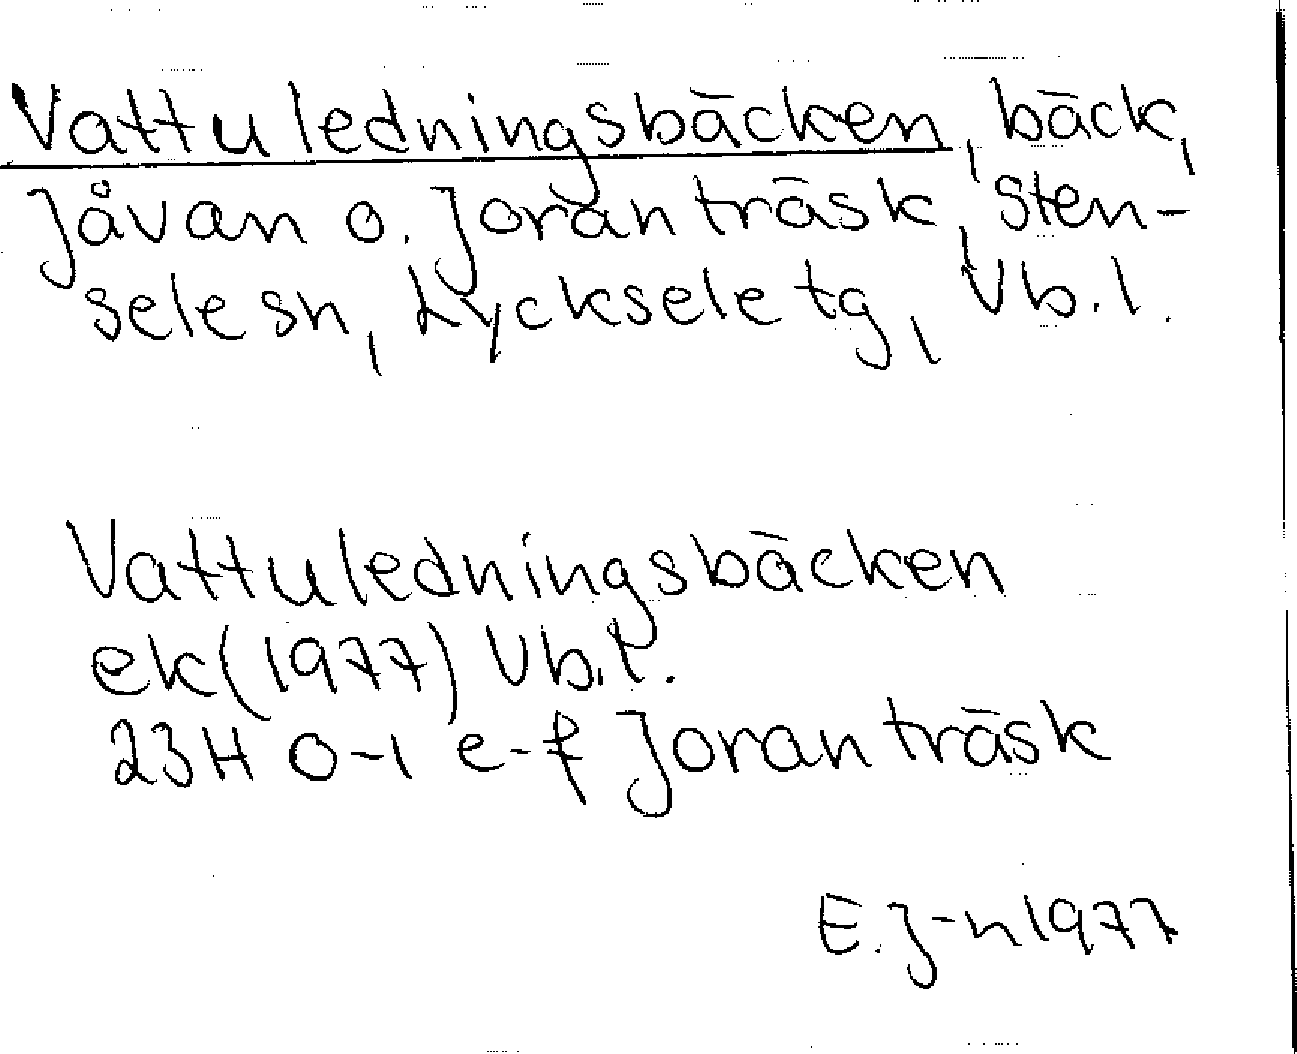 Vattuledningsbäcken, bäck,
Jåvan o. Joranträsk, Sten-
sele sn, Lycksele tg, Vb. l.
Vattuledningsbäcken
ek (1977) Vb. l.
23H 0-1 e-f Joranträsk
E. J-n 1977